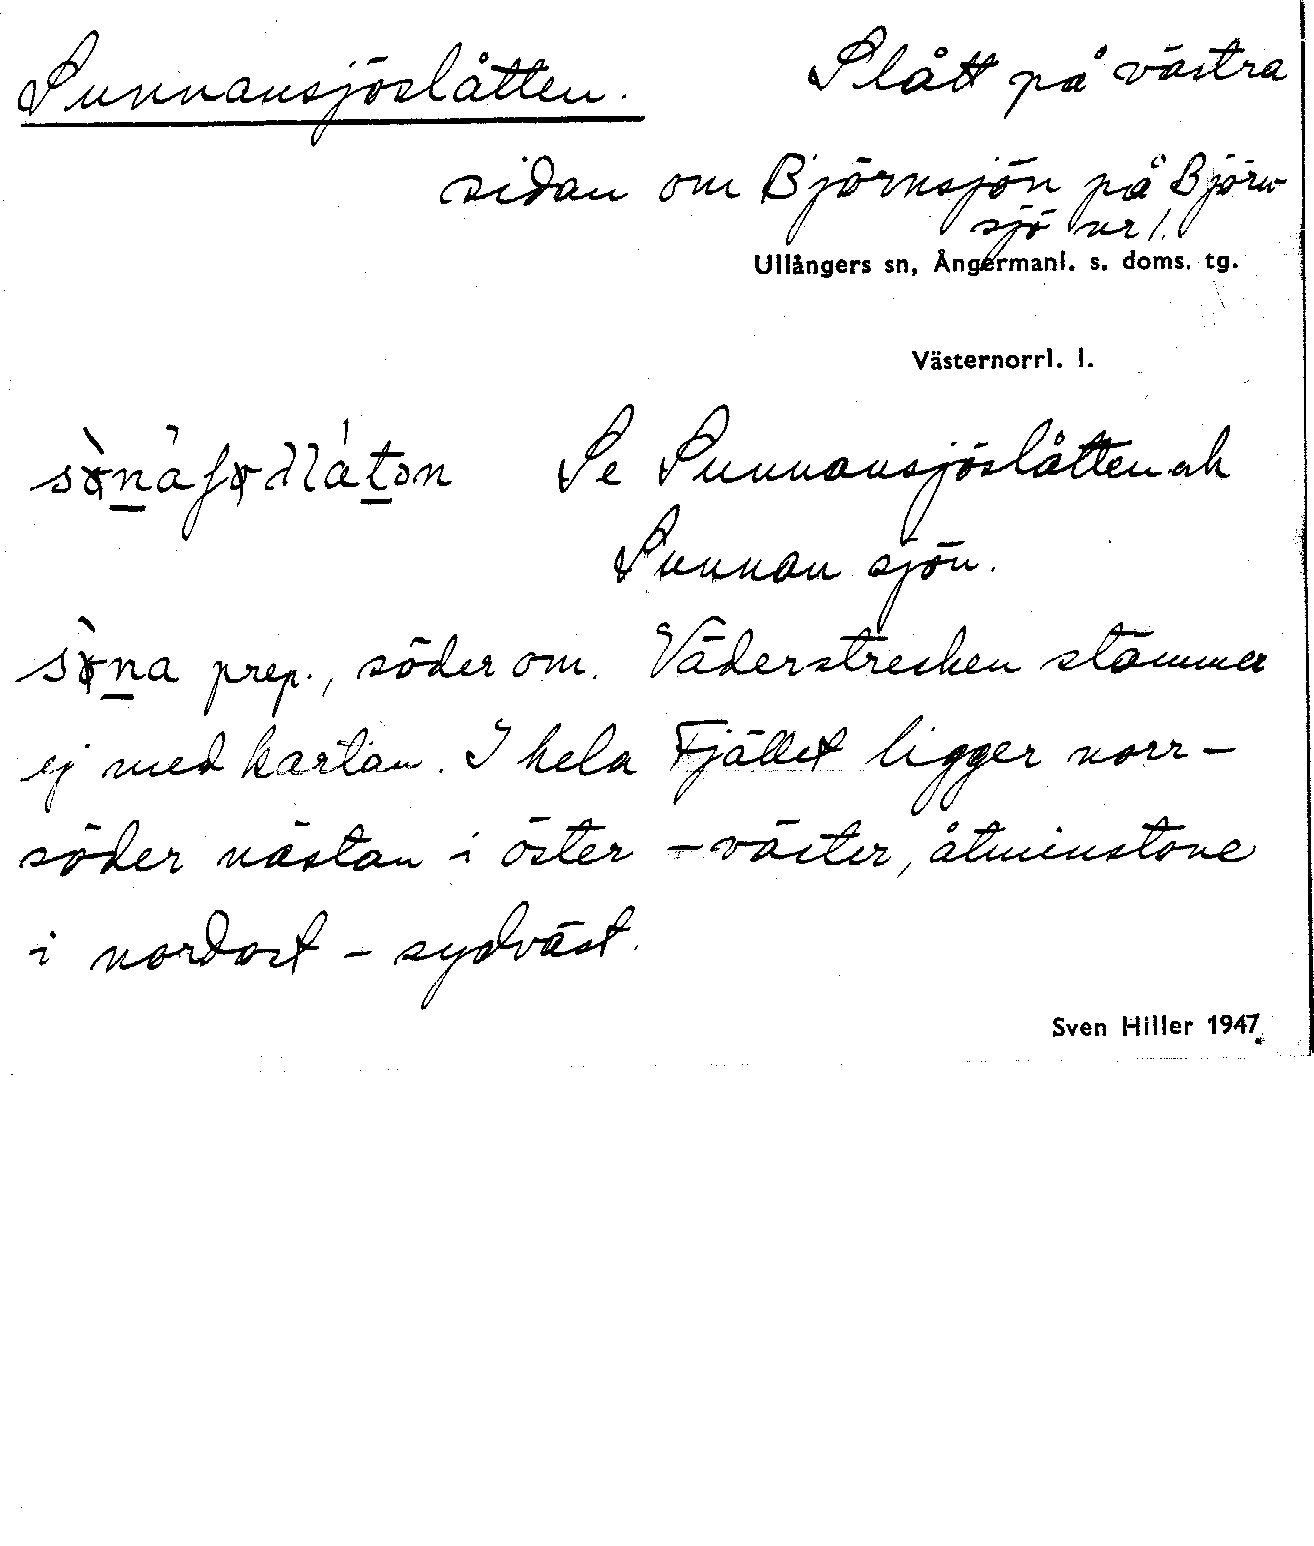 Sunnansjöslåtten. Slått på västra
sidan om Björnsjön på Björn
sjö nr 1.
Ullångers sn, Ångermanl. s. doms. tg.
Västernorrl. l.
Se Sunnansjöslåtten och
Sunnan sjön.
prep., söder om. Väderstrecken stämmer
ej med kartan. I hela Fjället ligger norr-
söder nästan i öster - väster, åtminstone
i nordost - sydväst.
Sven Hiller 1947